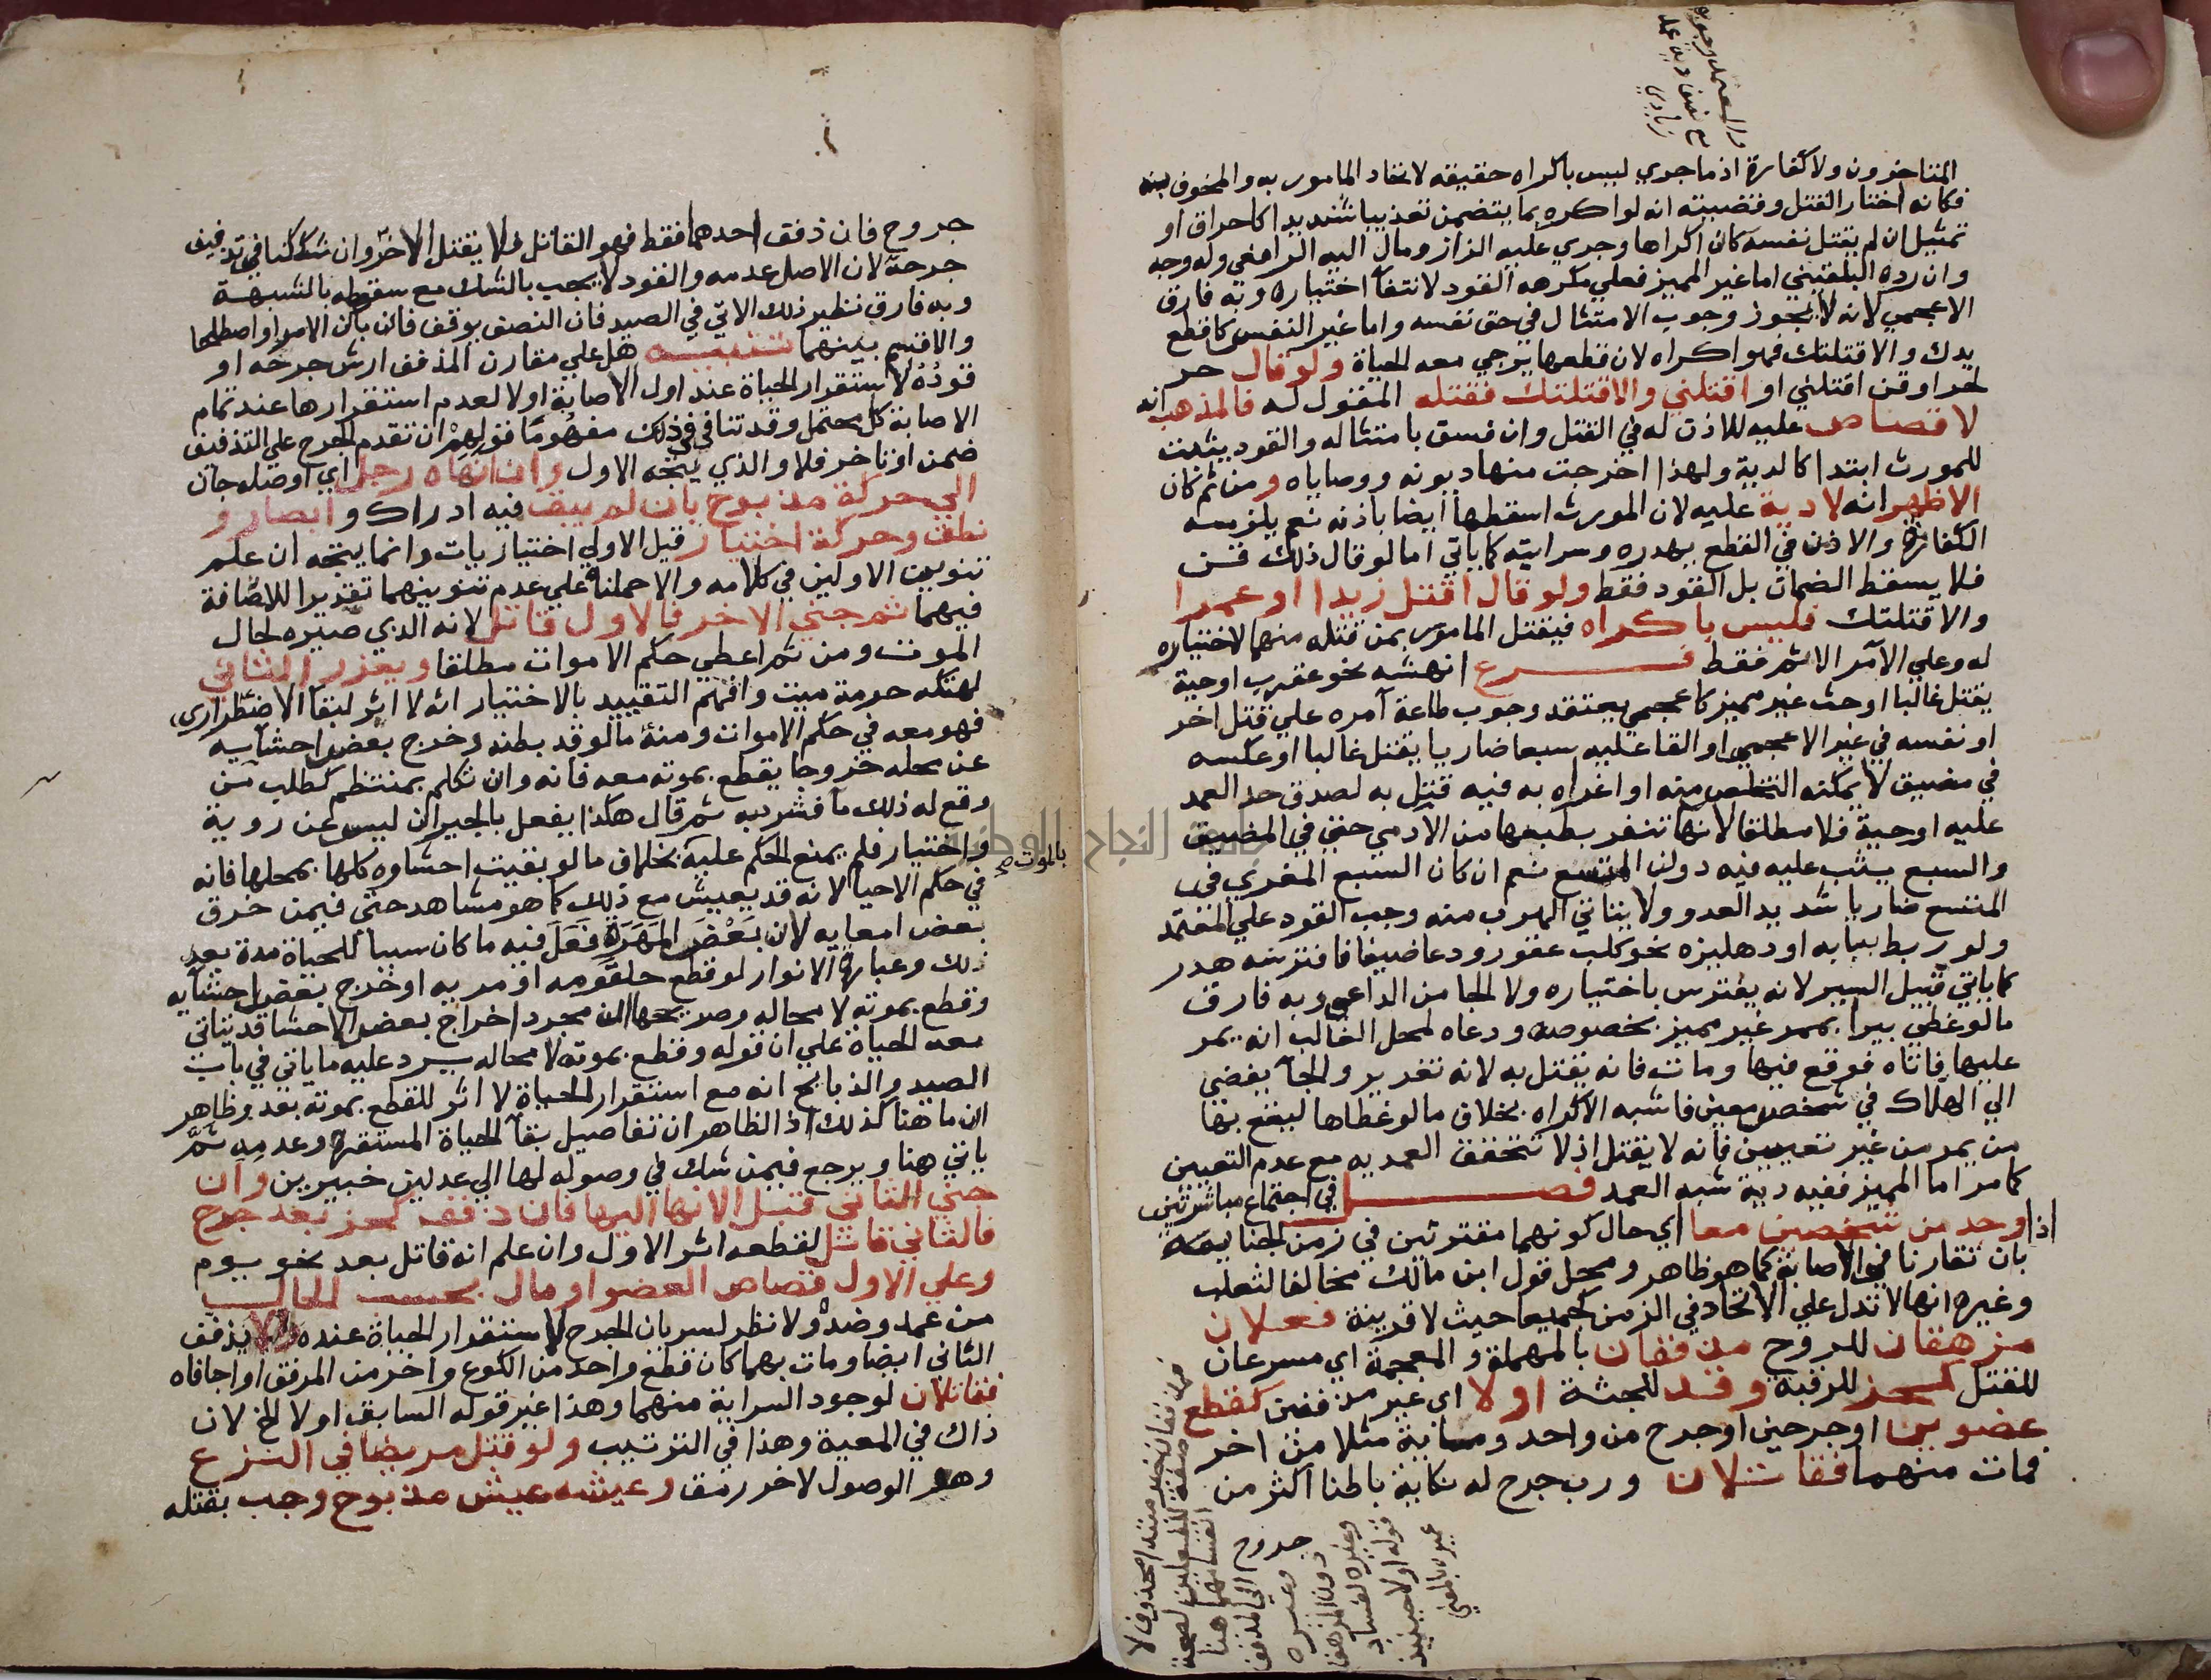 المتاخرون ولا كفارة اذ ما جري ليس باكراه حقيقة لاتحاد المامور به والمخوف به
فكانه اختار القتل وقضيته انه لو اكره بما يتضمن تعذيبا شديدا كاحراق او
تمثيل ان لم يقتل نفسه كان اكراها وجري عليه البزاز ومال اليه الرافعي وله وجه
وان رده البلقيني اما غير المميز فعلي مكرهه القود لانتفآ اختياره وبه فارق
الاعجمي لانه لا يجوز وجوب الامتثال في حق نفسه واما غير النفس كاقطع
يدك والا قتلتك فهو اكراه لان قطعها يرجي معه الحياة ولو قال حر
لحر او قن اقتلني او اقتلني والا قتلتك فقتله المقول له فالمذهب انه
لا قصاص عليه للاذن له في القتل وان فسق بامتثاله والقود يثبت
للمورث ابتدا كالدية ولهذا اخرجت منها ديونه ووصاياه ومن ثم كان
الاظهر انه لا دية عليه لان المورث اسقطها ايضا باذنه نعم يلزمه
الكفارة والاذن في القطع يهدره وسرايته كما ياتي اما لو قال ذلك قن
فلا يسقط الضمان بل القود فقط ولو قال اقتل زيدا او عمرا
والا قتلتك فليس باكراه فيقتل المامور بمن قتله منهما لاختياره
له وعلي الآمر الاثم فقط فرع انهشه نحو عقرب او حية
يقتل غالبا او حث غير مميز كاعجمي يعتقد وجوب طاعة آمره علي قتل اخر
او نفسه في غير الاعجمي او القا عليه سبعا ضاريا يقتل غالبا او عكسه
في مضيق لا يمكنه التخلص منه او اغراه به فيه قتل به لصدق حد العمد
عليه او حية فلا مطلقا لانها تنفر بطبعها من الادمي حتي في المضيق
والسبع يثب عليه فيه دون المتسع نعم ان كان السبع المغري في
المتسع ضاريا شديد العدو ولا يتاتي الهرب منه وجب القود علي المعتمد
ولو ربط ببابه او دهليزه نحو كلب عقور ودعا ضيفا فافترسه هدر
كما ياتي قبيل السير لانه يفترس باختياره ولا الجا من الداعي وبه فارق
ما لو غطي بيرا بممر غير مميز بخصوصه ودعاه لمحل الغالب انه يمر
عليها فاتاه فوقع فيها ومات فانه يقتل به لانه تغرير والجآ يفضي
الي الهلاك في شخص معين فاشبه الاكراه بخلاف ما لو غطاها ليقع بها
من يمر من غير تعيين فانه لا يقتل اذ لا تتحقق العمدية مع عدم التعيين
كما مر اما المميز ففيه دية شبه العمد فصل في اجتماع مباشرتين
اذا وجد من شخصين معا اي حال كونهما مقترنين في زمن الجناية
بان تقارنا في الاصابة كما هو ظاهر ومحل قول ابن مالك مخالفا لثعلب
وغيره انها لا تدل علي الاتحاد في الزمن كجميعا حيث لا قرينة فعلان
مزهقان للروح مذففان بالمهملة والمعجمة اي مسرعان
للقتل كحز للرقبة وقد للجثة او لا اي غير مذففين كقطع
عضوين او جرحين او جرح من واحد وماية مثلا من اخر
فمات منهما فقاتلان ورب جرح له نكاية باطنا اكثر من
جروح
جروح فان ذفف احدهما فقط فهو القاتل فلا يقتل الاخر وان شككنا في تذفيف
جرحه لان الاصل عدمه والقود لا يجب بالشك مع سقوطه بالشبهة
وبه فارق نظير ذلك الاتي في الصيد فان النصف يوقف فان بان الامر او اصطلحا
والا قسم بينهما تنبيه هل علي مقارن المذفف ارش جرحه او
قوده لاستقرار الحياة عند اول الاصابة او لا لعدم استقرارها عند تمام
الاصابة كل محتمل وقد تنافي في ذلك مفهوما قولهم ان تقدم الجرح علي التذفيف
ضمن او تاخر فلا والذي يتجه الاول وان انهاه رجل اي اوصله جان
الي حركة مذبوح بان لم يبق فيه ادراك وابصار و
نطق وحركة اختيار قيل الاولي اختياريات وانما يتجه ان علم
تنوين الاولين في كلامه والا حملناه علي عدم تنوينهما تقديرا للاضافة
فيهما ثم جني الاخر فالاول قاتل لانه الذي صيره لحال
الموت ومن ثم اعطي حكم الاموات مطلقا ويعزر الثاني
لهتكه حرمة ميت وافهم التقييد بالاختيار انه لا اثر لبقآ الاضطراري
فهو معه في حكم الاموات ومنه ما لو قد بطنه وخرج بعض احشآيه
عن محله خروجا يقطع بموته معه فانه وان تكلم بمنتظم كطلب من
وقع له ذلك مآ فشربه ثم قال هكذا يفعل بالجيران ليس عن روية
واختيار فلم يمنع الحكم عليه بخلاف ما لو بقيت احشاوه كلها بمحلها فانه
بالموت صح
في حكم الاحيآ لانه قد يعيش مع ذلك كما هو مشاهد حتي فيمن خرق
بعض امعايه لان بعض المهرة فعل فيه ما كان سببا للحياة مدة بعد
ذلك وعبارة الانوار لو قطع حلقومه او مريه او خرج بعض احشآيه
وقطع بموته لا محاله وصريحها ان مجرد اخراج بعض الاحشا قد يتاتي
معه الحياة علي ان قوله وقطع بموته لا محاله يرد عليه ما ياتي في باب
الصيد والذبايح انه مع استقرار الحياة لا اثر للقطع بموته بعد وظاهر
ان ما هنا كذلك اذ الظاهر ان تفاصيل بقآ الحياة المستقرة وعدمه ثم
ياتي هنا ويرجع فيمن شك في وصوله لها الي عدلين خبيرين وان
جني الثاني قبل الانهآ اليها فان ذفف كحز بعد جرح
فالثاني قاتل لقطعه اثر الاول وان علم انه قاتل بعد نحو يوم
وعلي الاول قصاص العضو او مال بحسب الحال
من عمد وضده ولا نظر لسريان الجرح لاستقرار الحياة عنده والا يذفف
الثاني ايضا ومات بهما كان قطع واحد من الكوع واخر من المرفق او اجافاه
فقاتلان لوجود السراية منهما وهذا غير قوله السابق اولا الخ لان
ذاك في المعية وهذا في الترتيب ولو قتل مريضا في النزع
وهو الوصول لاخر رمق وعيشه عيش مذبوح وجب بقتله